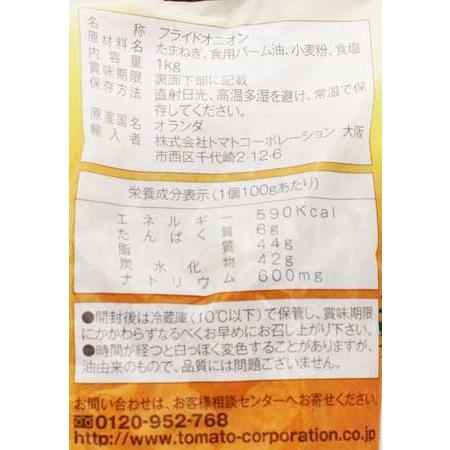 名称 フライドオニオン
原材料名 たまねぎ、食用パーム油、小麦粉、食塩
内容量 1kg
賞味期限 裏面下部に記載
保存方法 直射日光、高温多湿を避け、常温で保
存してください。
原産国名 オランダ
輸入者 株式会社トマトコーポレーション 大阪
市西区千代崎2-12-6
栄養成分表示(1個100gあたり)
エネルギー 590Kcal
たんぱく質 6g
脂質 44g
炭水化物 42g
ナトリウム 600mg
●開封後は冷蔵庫(10℃以下)で保管し、賞味期限
にかかわらずなるべくお早めにお召し上がり下さい。
●時間が経つと白っぽく変色することがありますが、
油由来のもので、品質には問題ございません。
お問い合わせは、お客様相談センターへお寄せください。
0120-952-768
http://www.tomato-corporation.co.jp